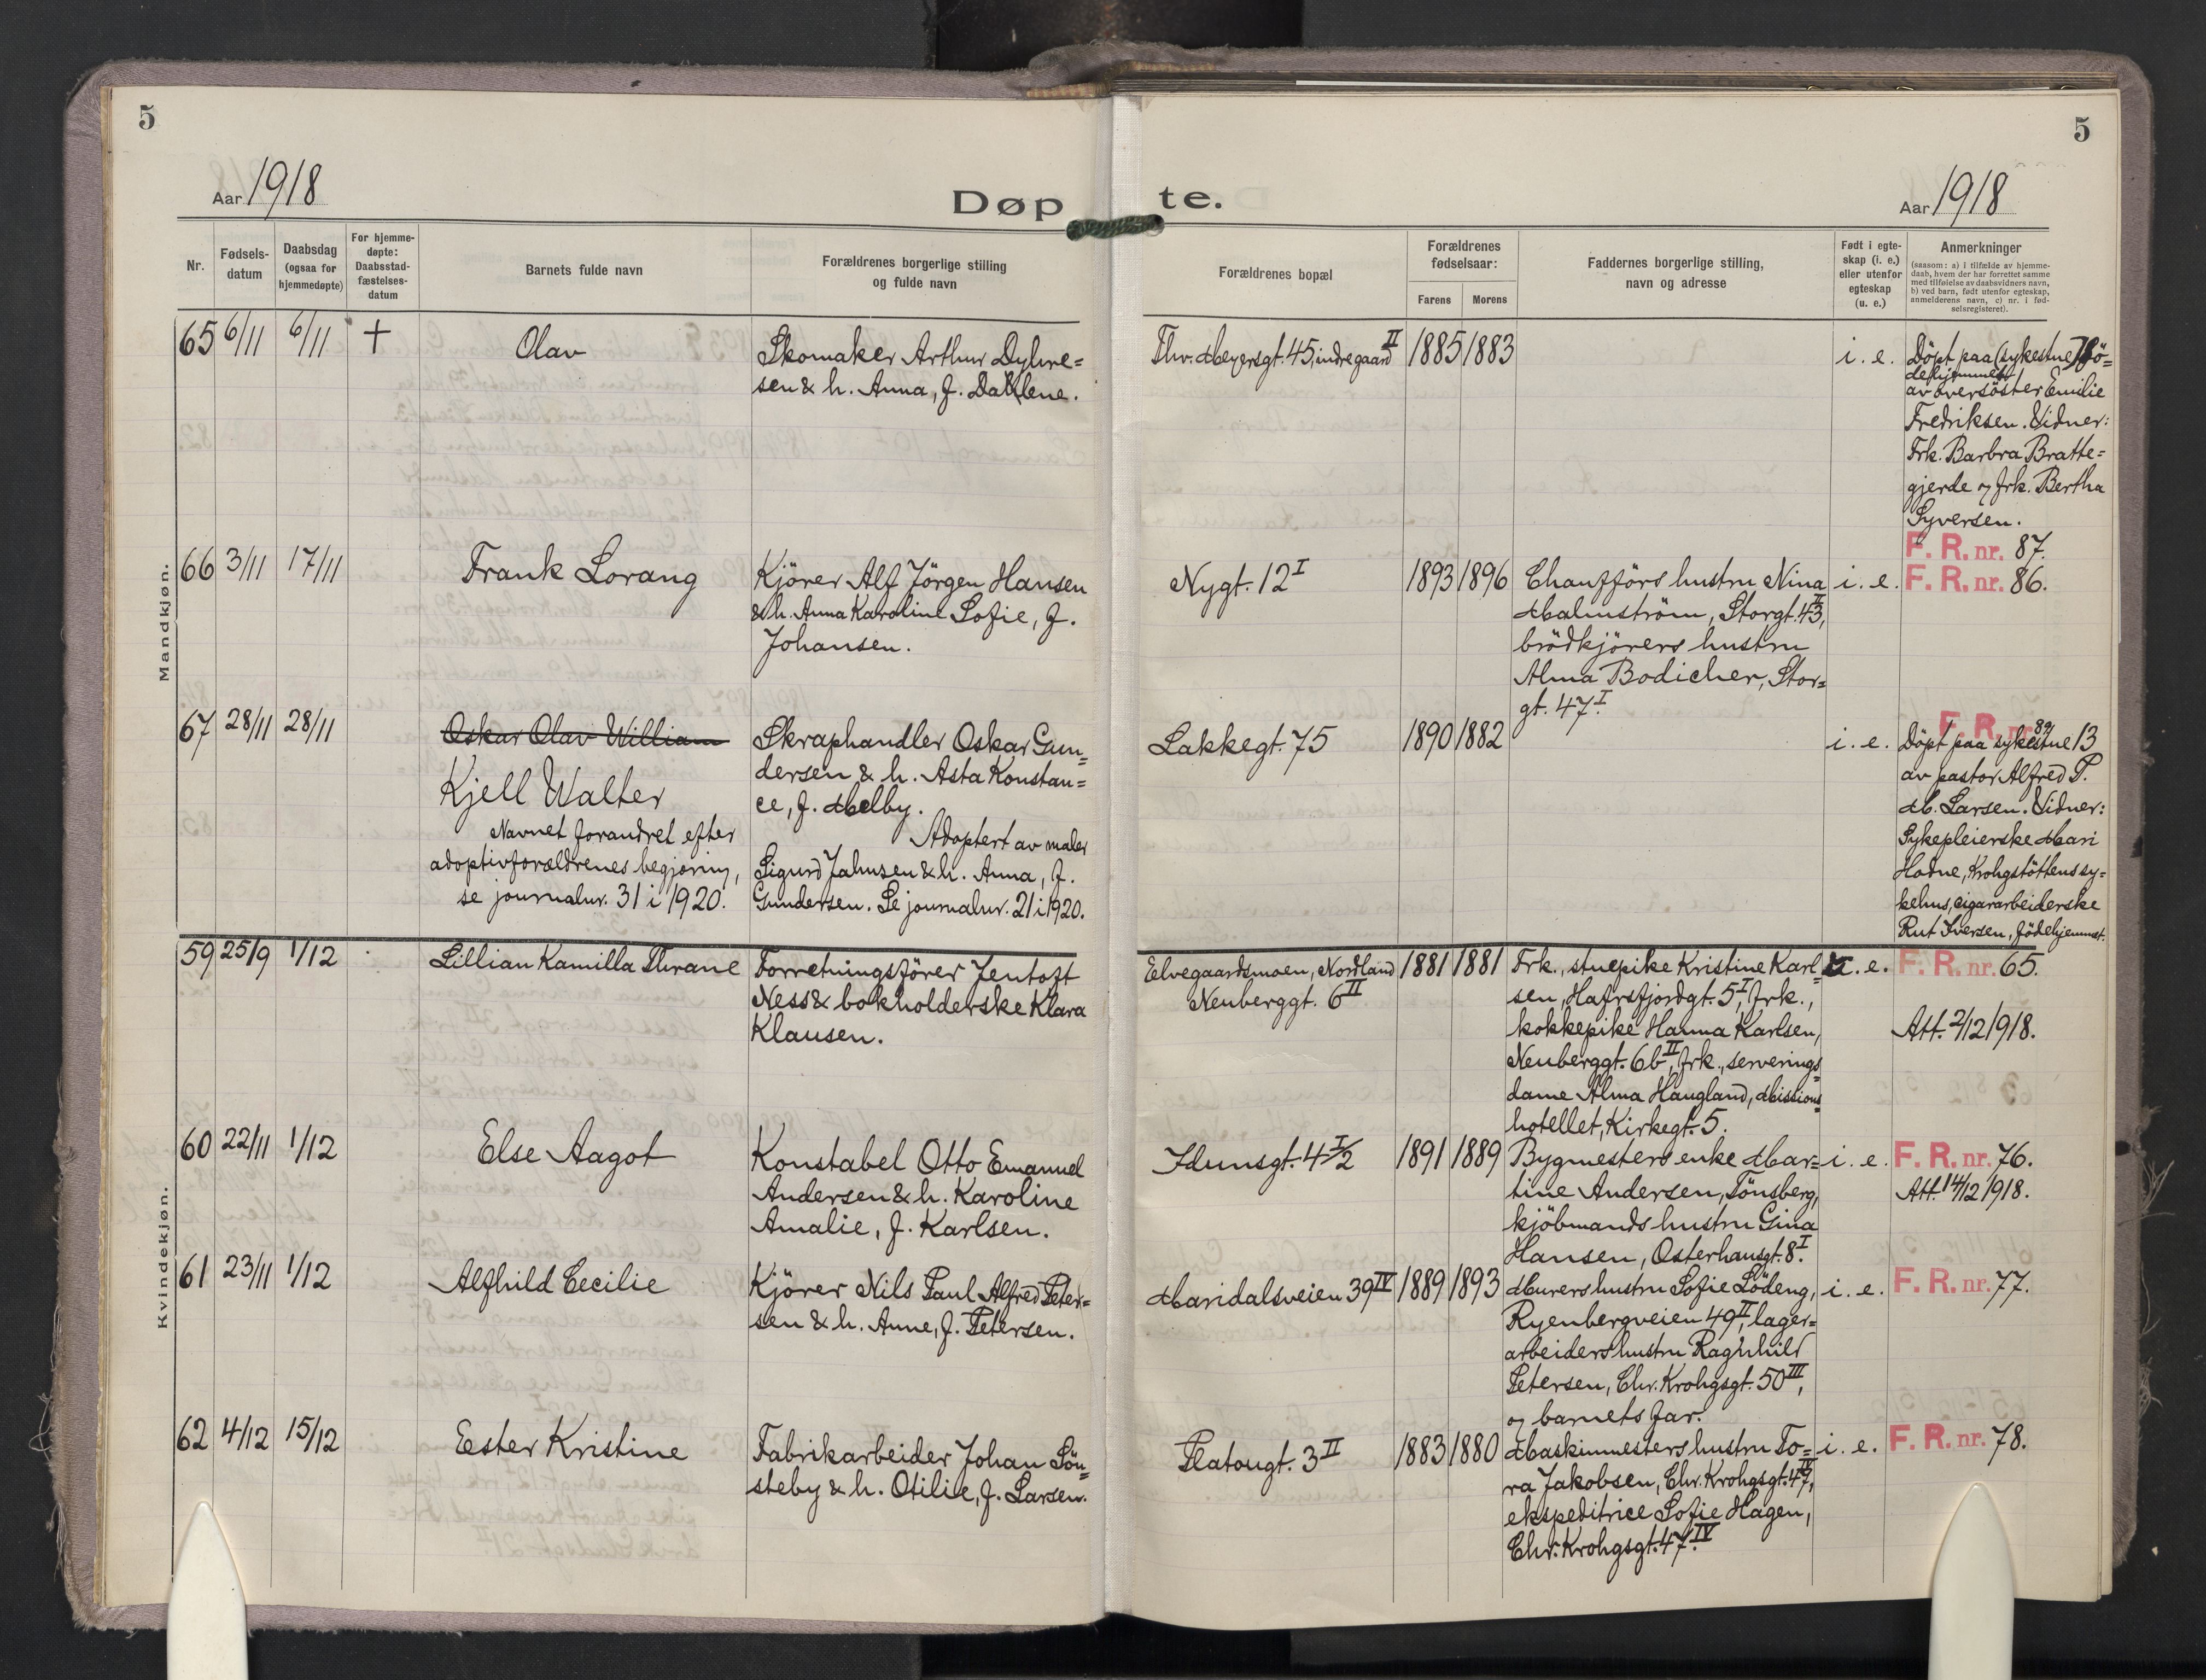 5
5
Aar 1918
Døpte.
Aar 1918
Nr.
Fødsels-
datum
Daabsdag
(ogsaa for
hjemmedøpte)
For hjemme-
døpte:
Daabsstad-
fæstelses-
datum
Barnets fulde navn
Forældrenes borgerlige stilling
og fulde navn
Forældrenes bopæl
Forældrenes
fødselsaar:
Farens
Morens
Faddernes borgerlige stilling,
navn og adresse
Født i egte-
skap (i. e.)
eller utenfor
egteskap
(u. e.)
Anmerkninger
(saasom: a) i tilfælde av hjemme-
daab, hvem der har forrettet samme
med tilføielse av daabsvidners navn,
b) ved barn, født utenfor egteskap,
anmelderens navn, c) nr. i fød-
selsregisteret).
Mandkjøn.
65 6/11 6/11 +
Olav
Skomaker Arthur Dyhre=
sen & h. Anna, f. Dahlene.
Thv. Meyersgt. 45, indregaard II
1885 1883
i. e.
Döpt paa (sykestue) Fö=
dehjemmet
av oversöster Emilie
Fredriksen. Vidner:
Frk. Barbra Bratte=
gjerde og frk. Bertha
Syversen.
F. R. nr. 87.
66 3/11 17/11
Frank Lorang
Kjörer Alf Jörgen Hansen
& h. Anna Karoline Sofie, f.
Johansen.
Nygt. 12 I
1893 1896
Chaufförs hustru Nina
Malmström, Storgt. 43 II,
brödkjörers hustru
Alma Bodicher, Stor=
gt. 47 I.
i. e.
F. R. nr. 86.
67 28/11 28/11
Oskar Olav William
Kjell Walter
Navnet forandret efter
adoptivforældrenes begjæring,
se journalnr. 31 i 1920.
Skraphandler Oskar Gun=
dersen & h. Asta Konstan=
ce, f. Melby.
Adoptert av maler
Sigurd Jahnsen & h. Anna, f.
Gundersen. Se journalnr. 21 i 1920.
Lakkegt. 75
1890 1882
i. e.
F. R. nr. 89
Döpt paa sykestue 13
av pastor Alfred P.
M. Larsen. Vidner:
Sykepleierske Mari
Hodne, Krohgstöttens sy=
kehus, cigararbeiderske
Rut Iversen, födehjemmet.
Kvindekjøn.
59 25/9 1/12
Lillian Kamilla Thrane
Forretningsförer Jentoft
Ness & bokholderske Klara
Klausen.
Elvegaardsmoen, Nordland
Neuberggt. 6 II
1881 1881
Frk., stuepike Kristine Karl=
sen, Hafrsfjordgt. 5 I, frk.,
kokkepike Hanna Karlsen,
Neuberggt. 6b II, frk., serverings=
dame Alma Haugland, Missions=
hotellet, Kirkegt. 5.
u. e.
F. R. nr. 65.
Att. 2/12 1918.
60 22/11 1/12
Else Aagot
Konstabel Otto Emanuel
Andersen & h. Karoline
Amalie, f. Karlsen.
Idunsgt. 4 I/2
1891 1889
Bygmesters enke Mar=
tine Andersen, Tönsberg,
kjöbmands hustru Gina
Hansen, Osterhausgt. 8 I.
i. e.
F. R. nr. 76.
Att. 14/12 1918.
61 23/11 1/12
Alfhild Cecilie
Kjörer Nils Paul Alfred Peter=
sen & h. Anne, f. Petersen.
Maridalsveien 39 IV
1889 1893
Murers hustru Sofie Lödeng,
Ryenbergveien 49 II, lager=
arbeiders hustru Raghhild
Petersen, Chr. Krohgsgt. 50 III,
og barnets far.
i. e.
F. R. nr. 77.
62 4/12 15/12
Ester Kristine
Fabrikarbeider Johan Sön=
steby & h. Otilie, f. Larsen.
Platougt. 3 II
1883 1880
Maskinmesters hustru To=
ra Jakobsen, Chr. Krohgsgt. 47 IV,
ekspeditrice Sofie Hagen,
Chr. Krohgsgt. 47 IV.
i. e.
F. R. nr. 78.